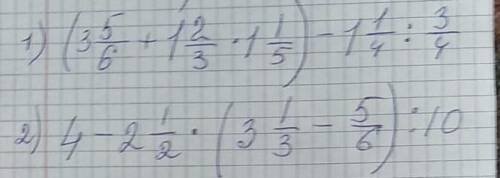 1) (3 5/6 + 1 2/3 · 1 1/5) - 1 1/4 : 3/4
2) 4 - 2 1/2 · (3 1/3 - 5/6) : 10